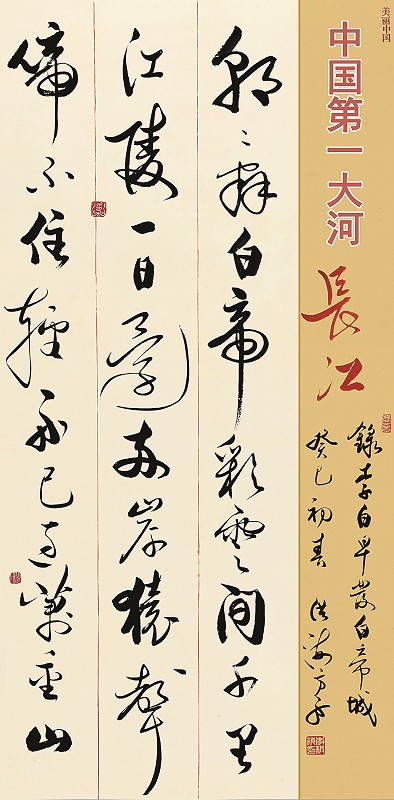 美丽中国
中国第一大河
長江
錄李白早發白帝城
癸巳初春
朝辭白帝彩雲間千里
江陵一日還兩岸猿聲
啼不住輕舟已過萬重山